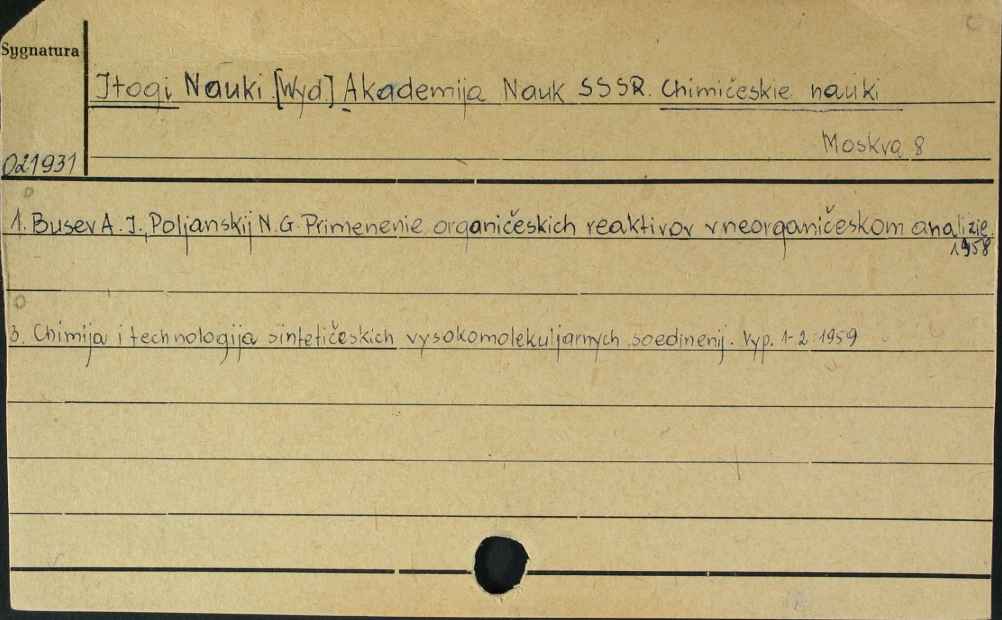 Sygnatura
Itogi Nauki [Wyd.] Akademija Nauk SSSR. Chimičeskie nauki
Moskva 8
021931
1. Busev A. I., Poljanskij N. G. Primenenie organičeskich reaktivov v neorganičeskom analizie.
1958
3. Chimija i technologija sintetičeskich vysokomolekuljarnych soedinenij. Vyp. 1-2 1959